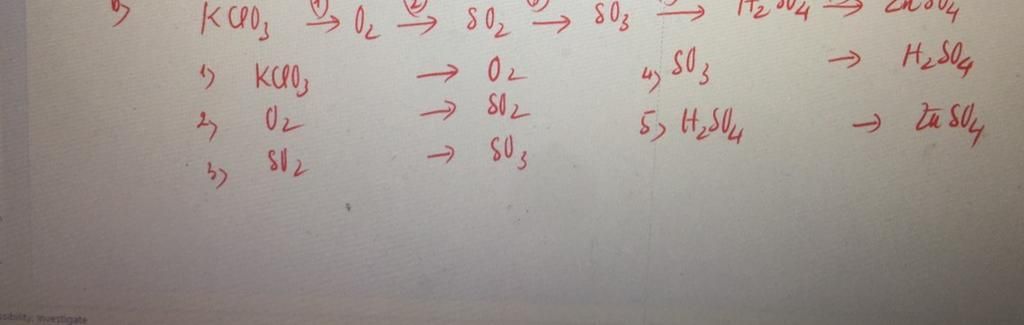 b) KClO3 (1)→ O2 (2)→ SO2 → SO3 → H2SO4 → ZnSO4
1) KClO3 → O2
2) O2 → SO2
3) SO2 → SO3
4) SO3 → H2SO4
5) H2SO4 → ZnSO4
ssibility: Investigate